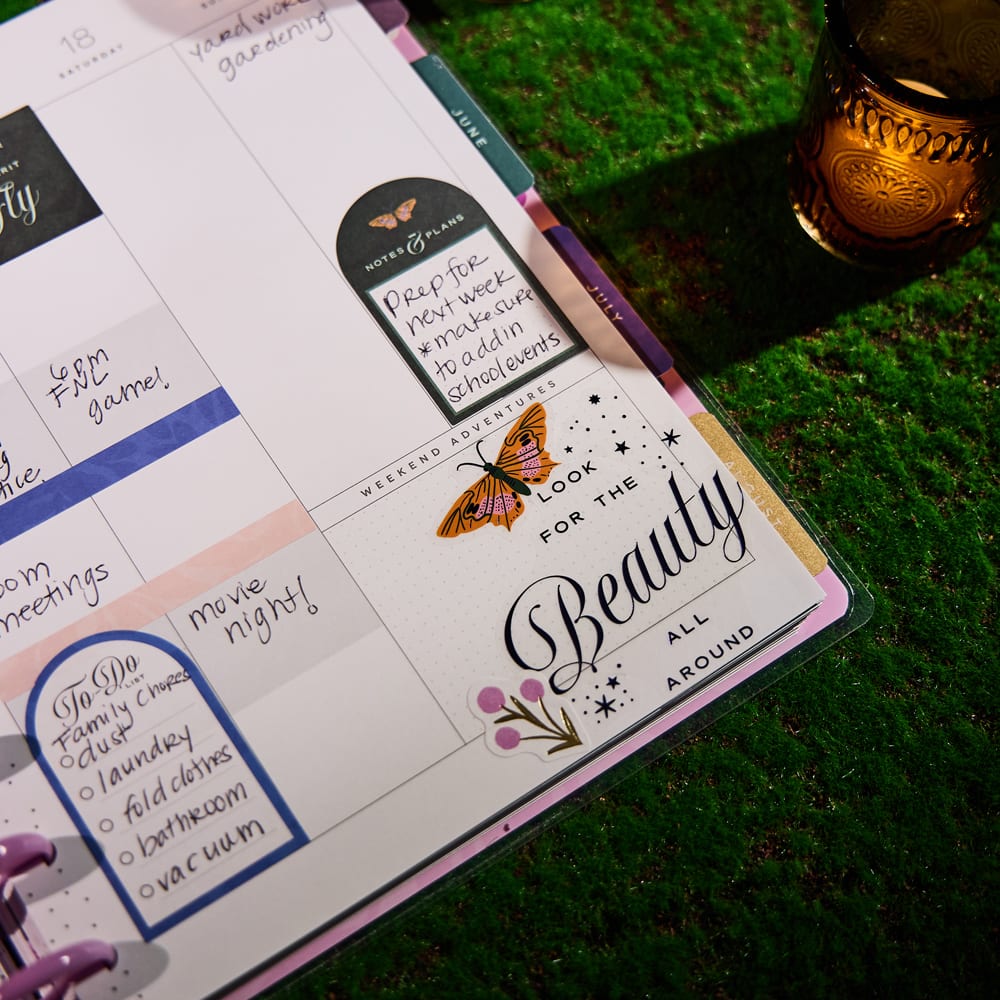 18
SATURDAY
yard work
gardening
JUNE
fly
NOTES & PLANS
prep for
next week
*make sure
to add in
school events
JULY
6pm
FNL
game!
WEEKEND ADVENTURES
LOOK
FOR THE
Beauty
ALL
AROUND
meetings
movie
night!
To-Do
LIST
Family Chores
dust
laundry
fold clothes
bathroom
vacuum